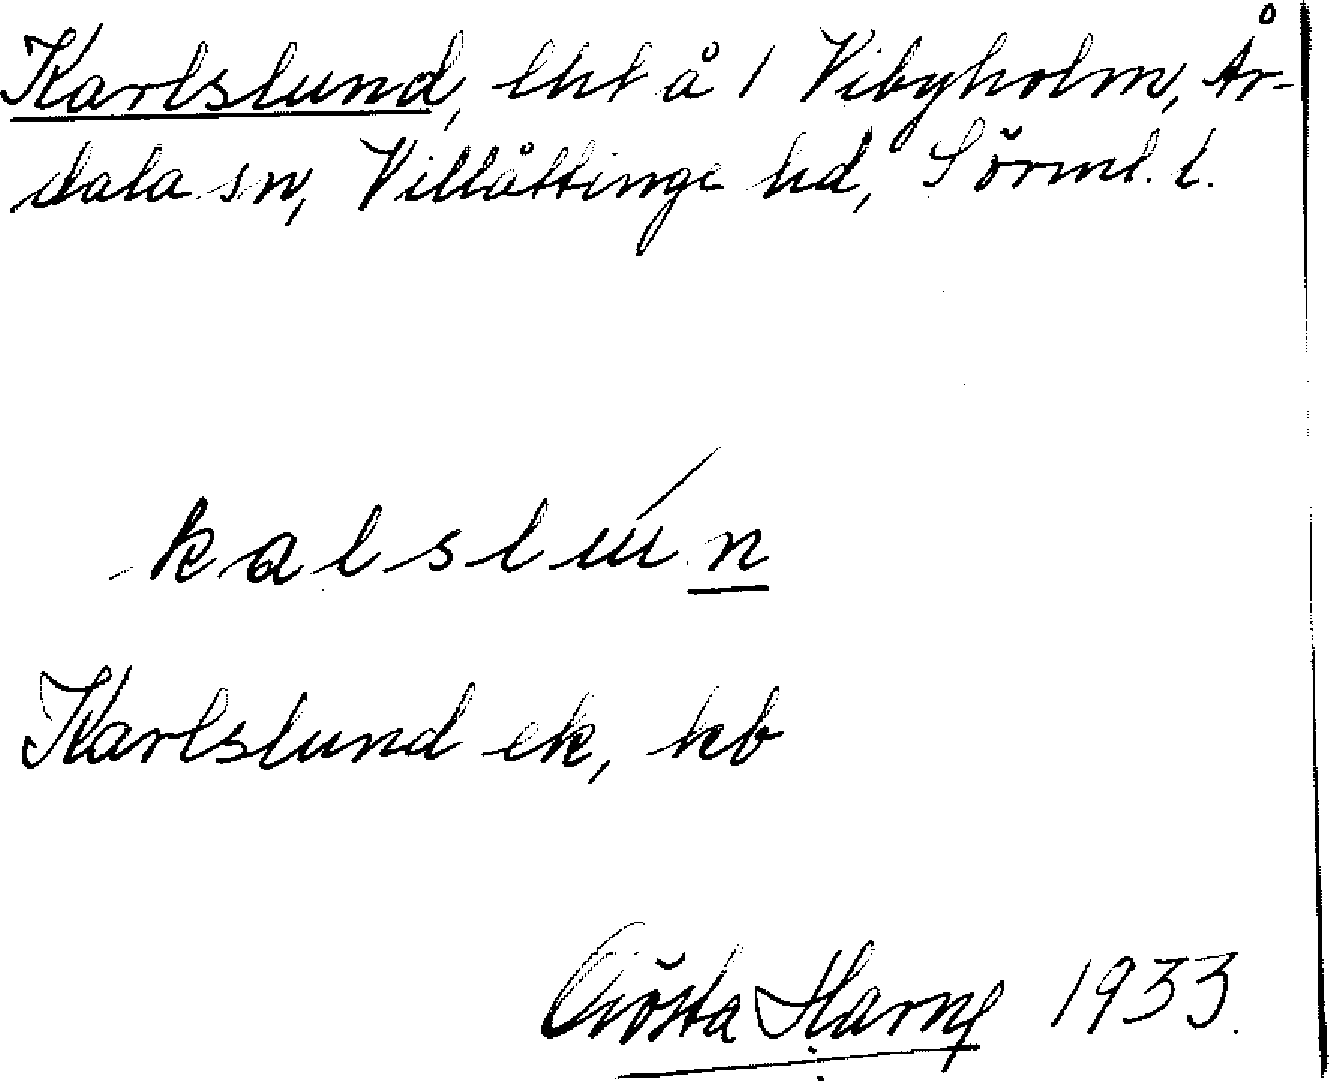 Karlslund, lht å 1 Vibyholm, År-
dala sn, Villåttinge hd, Sörml. l.
kalslun
Karlslund ek, kb
Gösta Harng 1933.